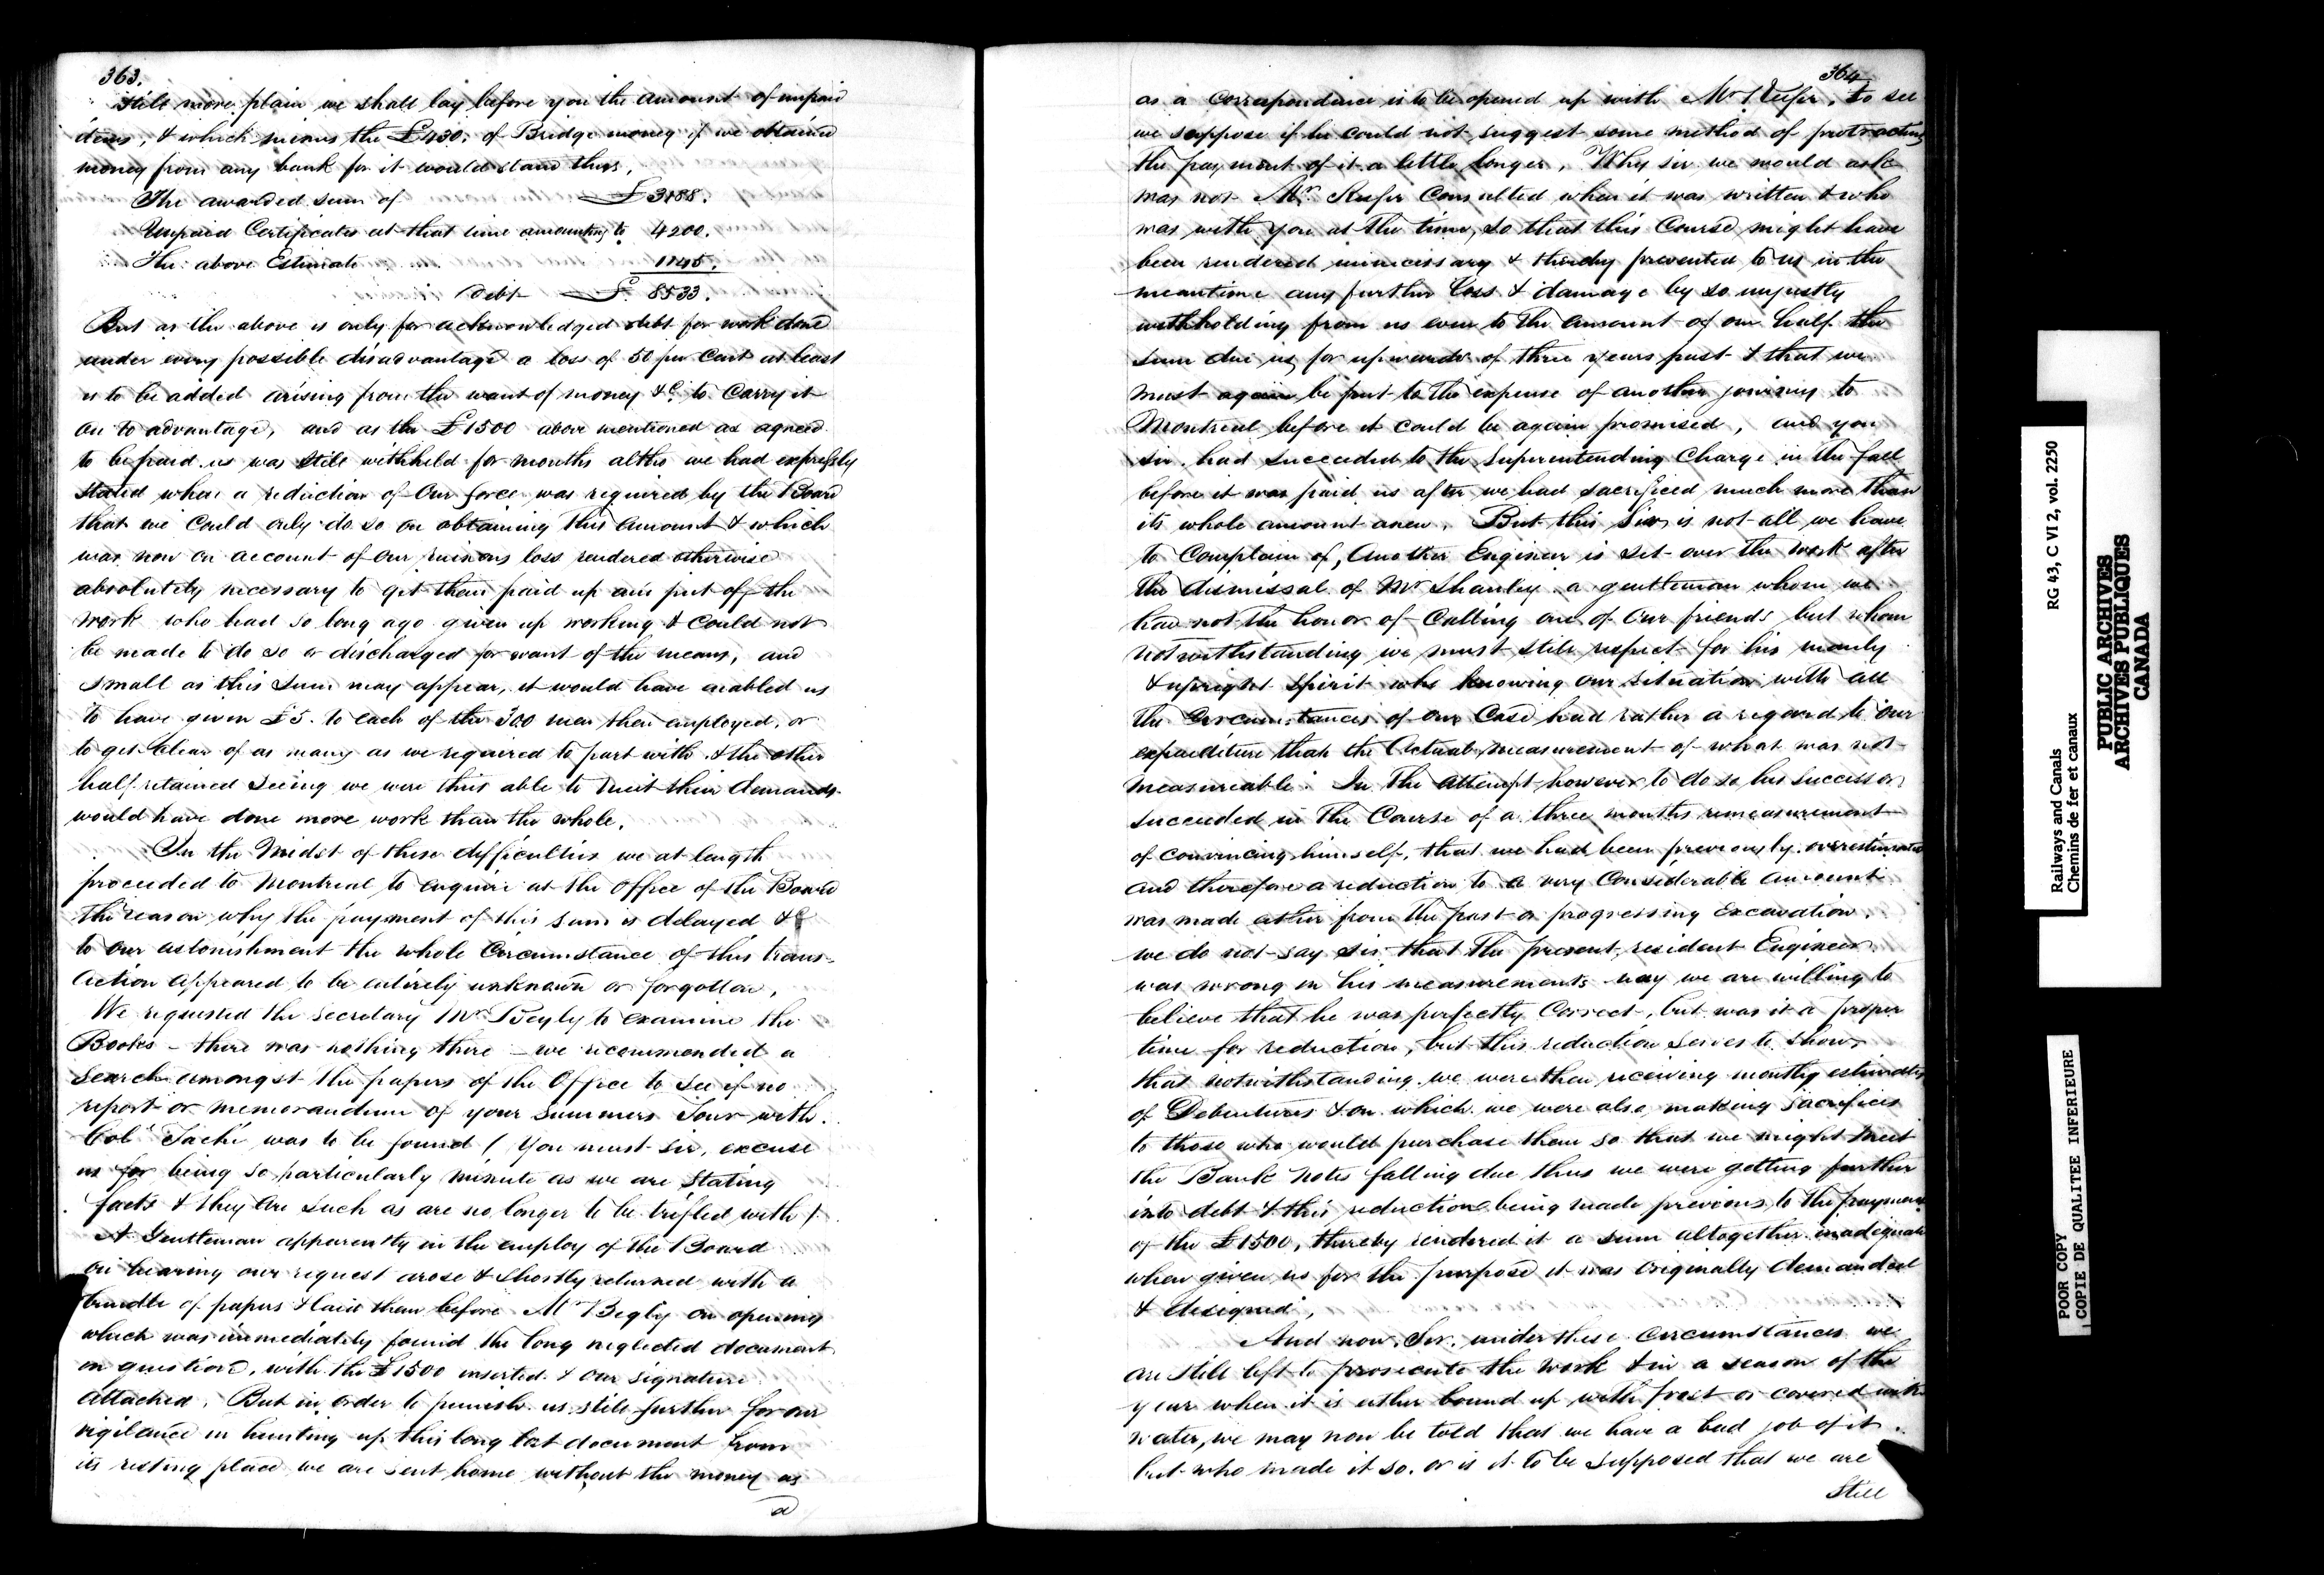 363.
still more plain we shall lay before you the amount of unpaid
items, & which means the £430, of Bridge money if we obtained
money from any bank for it would stand thus,
The awarded sum of £3188.
Unpaid Certificates at that time amounting to 4200.
The above Estimate 1145.
Debt £ 8533.
But as the above is only for acknowledged debt for work done
under every possible disadvantage a loss of 50 per Cent at least
is to be added arising from the want of money &c. to Carry it
on to advantage, and as the £1500 above mentioned as agreed
to be paid us was still withheld for months altho we had expressly
stated when a reduction of Our force was required by the Board
that we Could only do so on obtaining this amount & which
was now on account of Our ruinous loss rendered otherwise
absolutely necessary to get them paid up and put off the
work who had so long ago given up working & Could not
be made to do so or discharged for want of the means, and
small as this Sum may appear, it would have enabled us
to have given £5. to each of the 300 men then employed, or
to get clear of as many as we required to part with & the other
half retained seeing we were thus able to meet their demands
would have done more work than the whole.
In the Midst of these difficulties we at length
proceeded to Montreal to enquire at the Office of the Board
the reason why the payment of this sum is delayed &c
to our astonishment the whole Circumstance of this trans-
action appeared to be entirely unknown or forgotten,
We requested the Secretary Mr Begly to examine the
Books - there was nothing there - we recommended a
Search amongst the papers of the Office to See if no
report or memorandum of your Summers Tour with
Col Taché was to be found ( You must sir, excuse
us for being so particularly minute as we are stating
facts & they are such as are no longer to be trifled with )
A Gentleman apparently in the employ of the Board
on hearing our request arose & shortly returned with a
bundle of papers & laid them before Mr Begly on opening
which was immediately found the long neglected document
in question, with the £1500 inserted & our signature
attached, But in order to punish us still further for our
vigilance in hunting up this long lost document from
its resting place we are sent home without the money as
a
364
as a Correspondence is to be opened up with Mr Keefer, to see
we suppose if he could not suggest some method of protracting
the payment of it a little longer, Why sir we would ask
was not Mr Keefer Consulted when it was written & who
was with you at the time, so that this Course might have
been rendered unnecessary & thereby prevented to us in the
meantime any further loss & damage by so unjustly
withholding from us even to the amount of one half the
sum due us for upwards of three years past & that we
must again be put to the expense of another journey to
Montreal before it could be again promised, and you
sir had succeeded to the Superintending Charge in the fall
before it was paid us after we had sacrificed much more than
its whole amount anew. But this Sir is not all we have
to Complain of, Another Engineer is Set over the work after
the dismissal of Mr Shanley a gentleman whom we
have not the honor of Calling one of Our friends but whom
notwithstanding we must still respect for his manly
& upright Spirit who knowing our Situation with all
the Circumstances of our Case had rather a regard to our
expenditure than the Actual measurement of what was not
measureable. In the attempt however to do so his successor
succeeded in the Course of a three months remeasurement
of convincing himself, that we had been previously overestimated
and therefore a reduction to a very Considerable amount
was made either from the past or progressing Excavation,
we do not say sir that the present resident Engineer
was wrong in his measurements nay we are willing to
believe that he was perfectly Correct, but was it a proper
time for reduction, but this reduction serves to show,
that notwithstanding we were then receiving monthly estimates
of Debentures & on which we were also making sacrifices
to those who would purchase them so that we might meet
the Bank notes falling due thus we were getting further
into debt & this reduction being made previous to the payment
of the £1500, thereby rendered it a sum altogether inadequate
when given us for the purpose it was originally demanded
& designed,
And now, Sir, under these Circumstances we
are still left to prosecute the work & in a season of the
year when it is either bound up with frost or covered with
water, we may now be told that we have a bad job of it.
but who made it so, or is it to be supposed that we are
Still
RG 43, C VI 2, vol. 2250
Railways and Canals
Chemins de fer et canaux
PUBLIC ARCHIVES
ARCHIVES PUBLIQUES
CANADA
POOR COPY
COPIE DE QUALITEE INFERIEURE